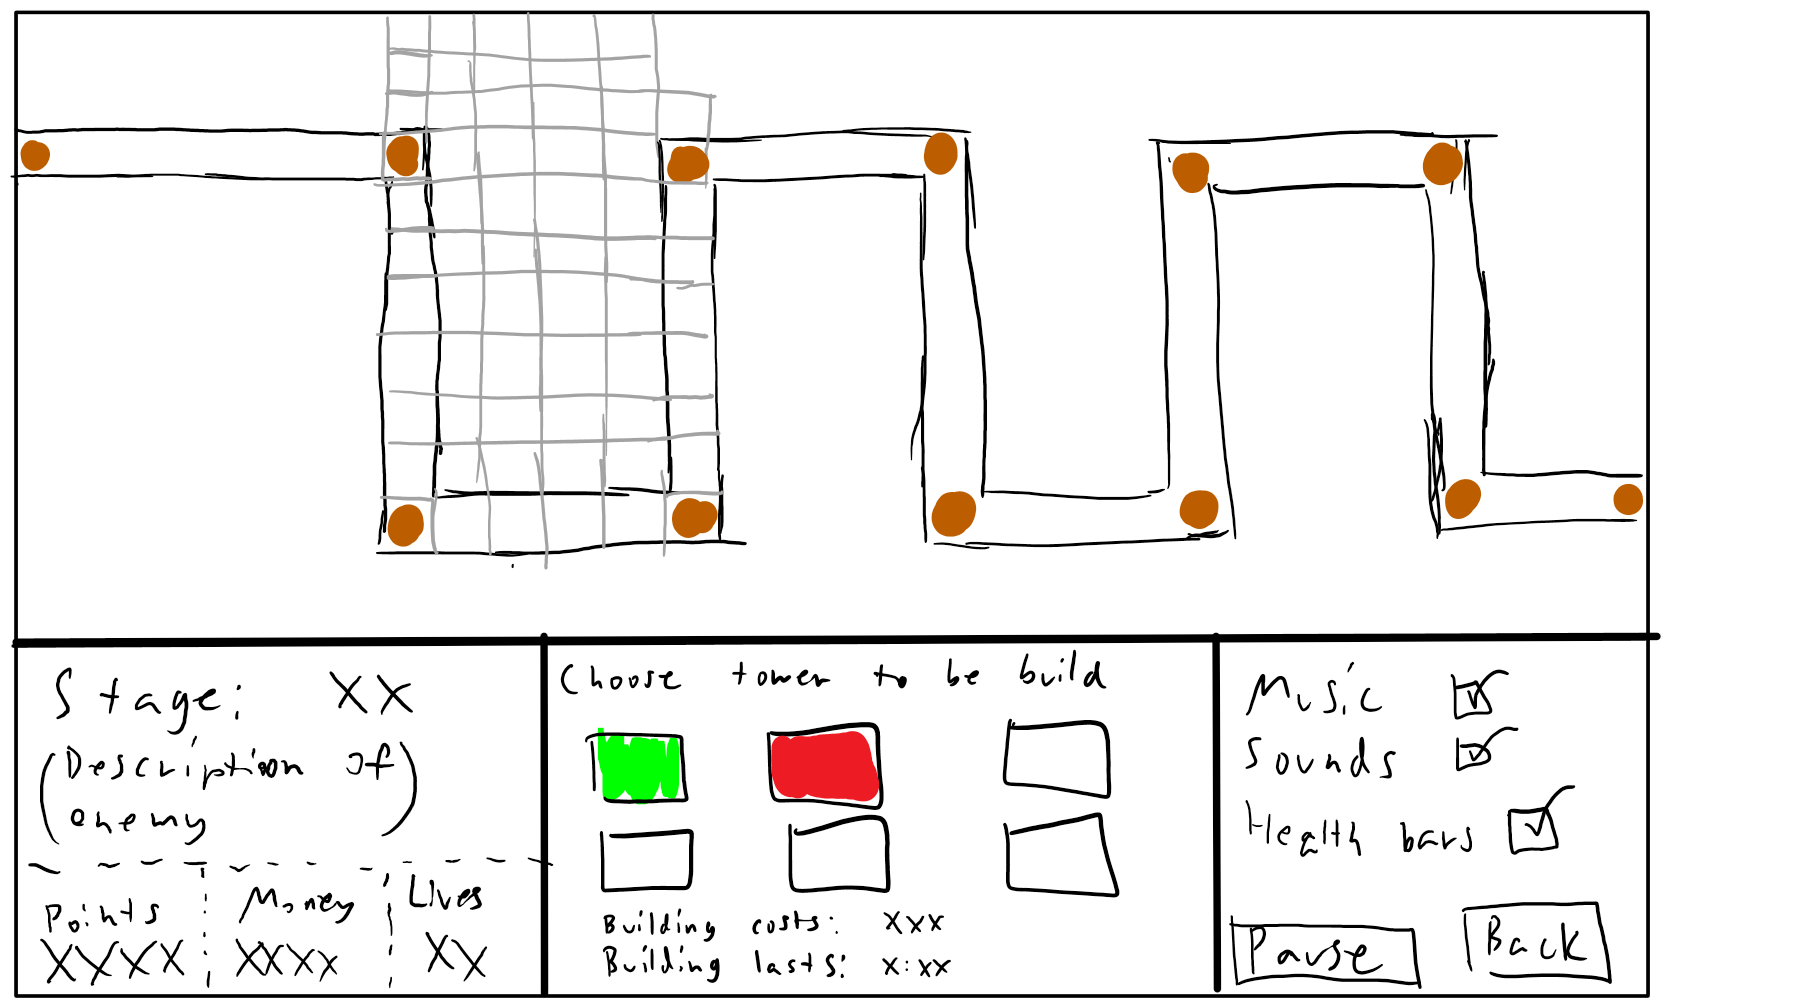 Stage: XX
(Description of
enemy)
Points
XXXX
Money
XXXX
Lives
XX
Choose tower to be build
Building costs: XXX
Building lasts: X:XX
Music
Sounds
Health bars
Pause
Back